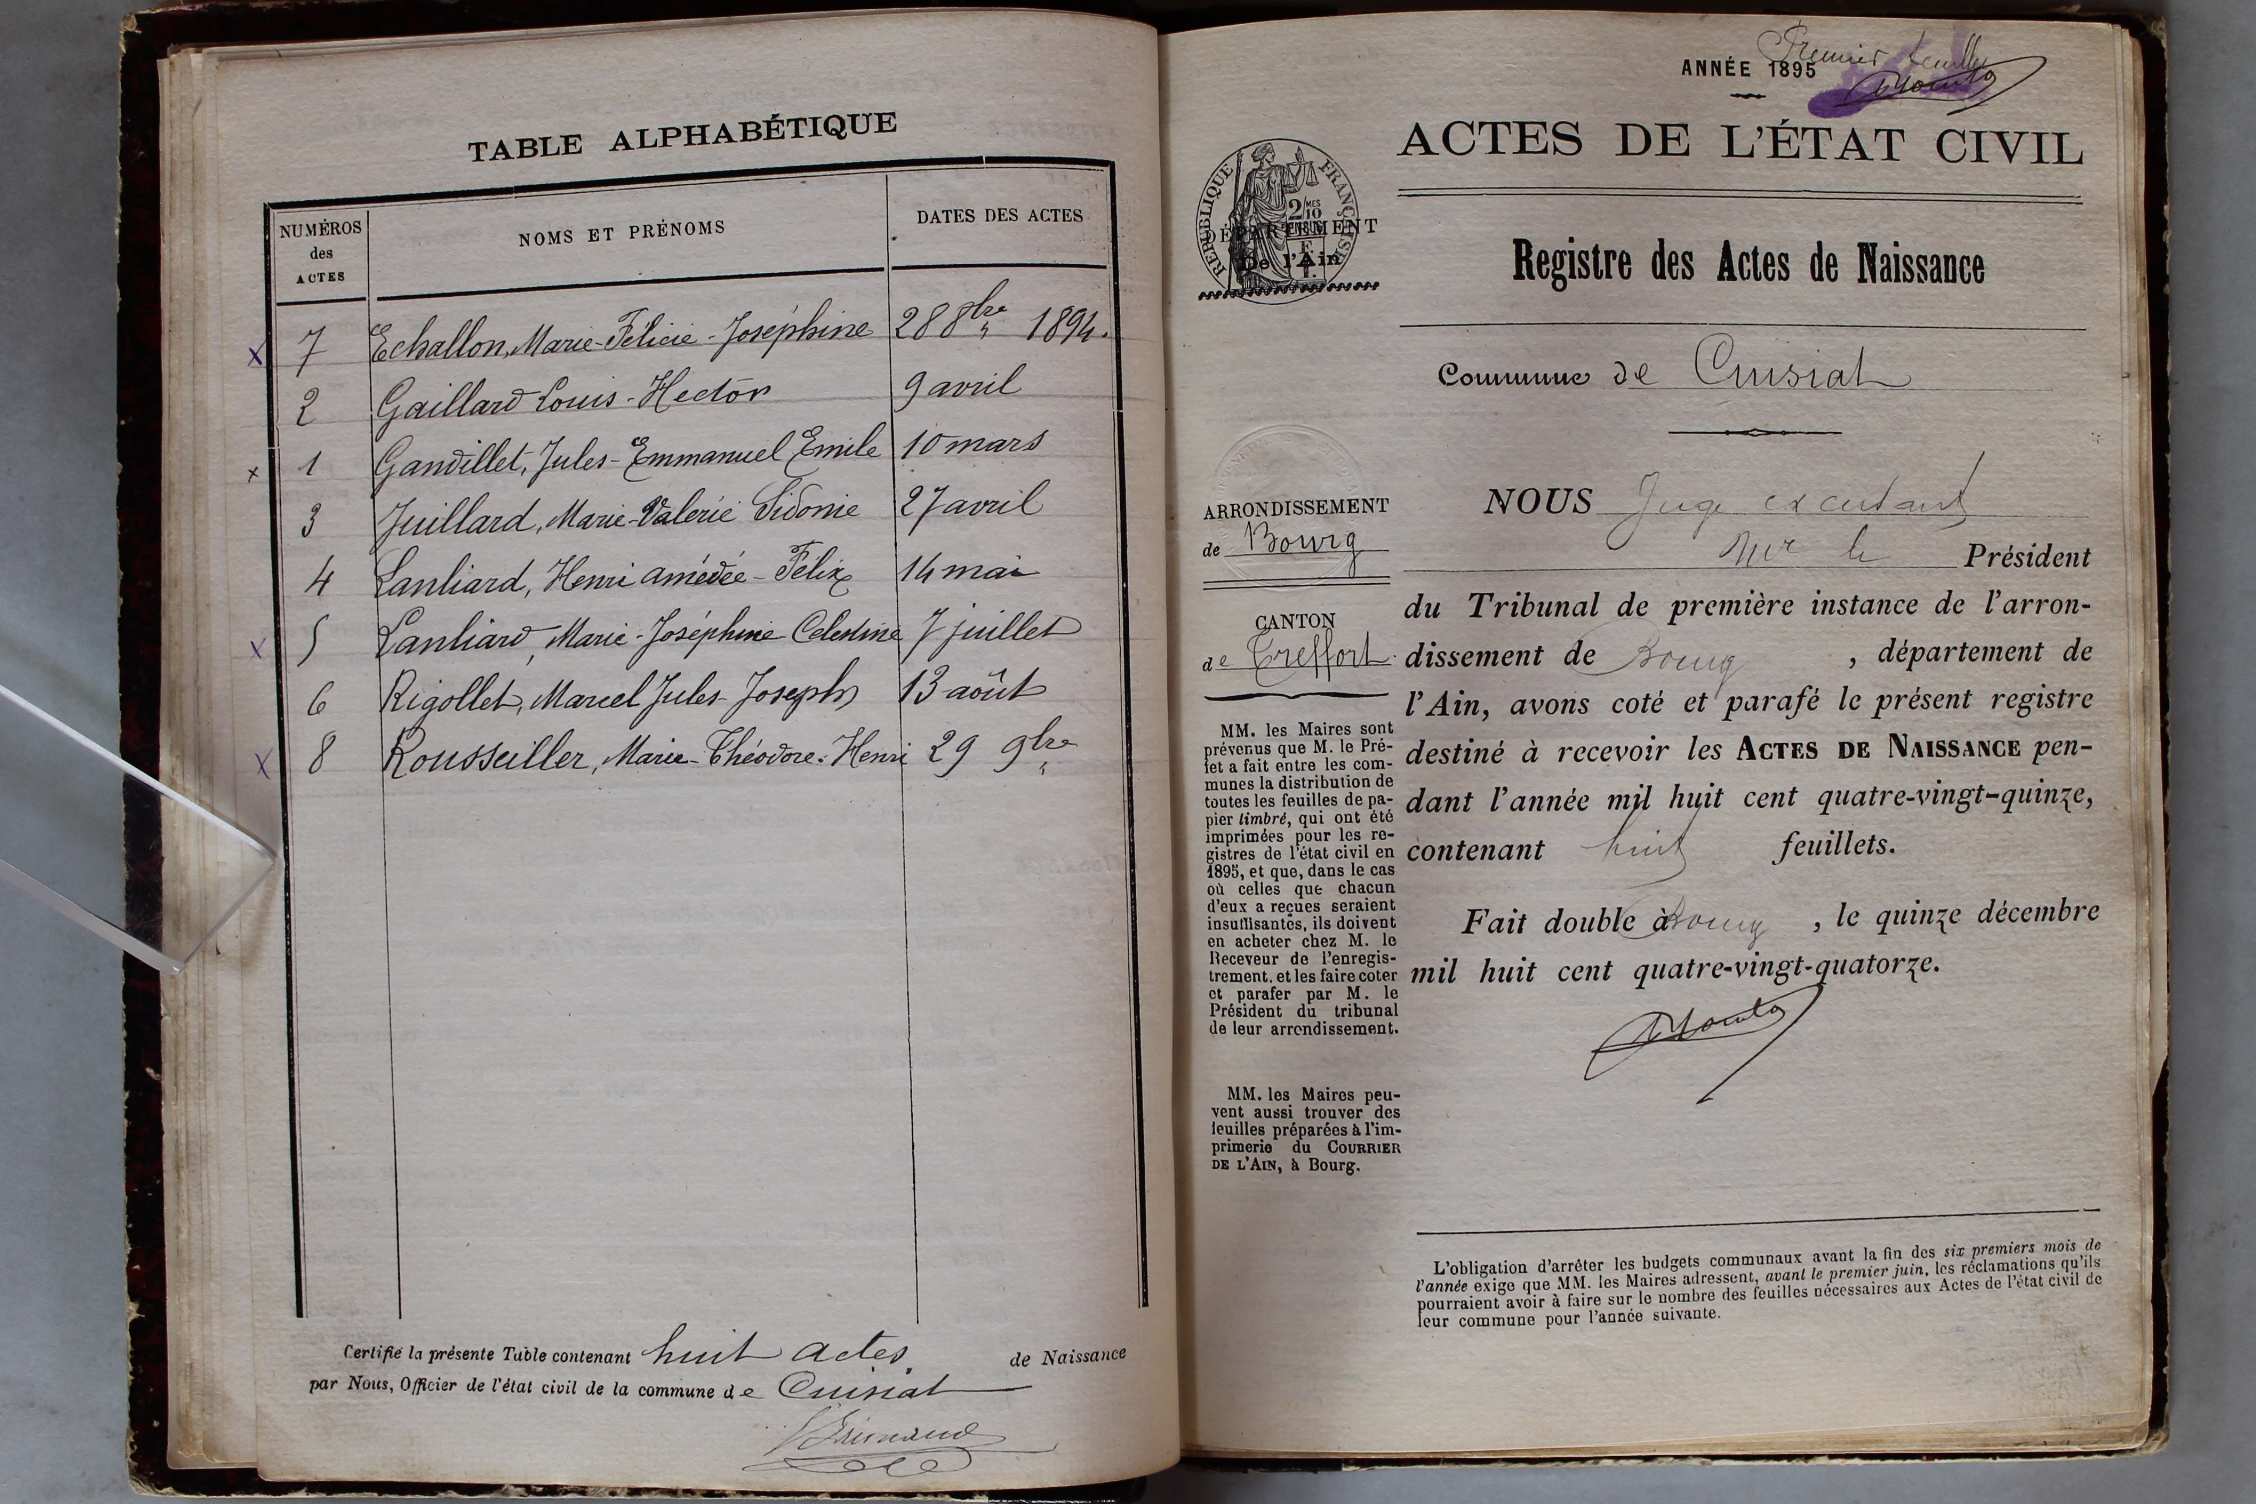 TABLE ALPHABÉTIQUE
NUMÉROS des ACTES
NOMS ET PRÉNOMS
DATES DES ACTES
x 7 Echallon, Marie-Félicie-Joséphine 28 8bre 1894.
2 Gaillard Louis-Hector 9 avril
x 1 Gandillet, Jules-Emmanuel Emile 10 mars
3 Juillard, Marie-Valérie Sidonie 27 avril
4 Lanliard, Henri amédée-Félix 14 mai
x 5 Lanliard, Marie-Joséphine Celestine 7 juillet
6 Rigollet, Marcel Jules-Joseph 13 août
x 8 Rousseiller, Marie-Théodore-Henri 29 9bre
Certifié la présente Table contenant huit actes de Naissance
par Nous, Officier de l'état civil de la commune de Cuisiat
Premier feuillet
ANNÉE 1895
ACTES DE L'ÉTAT CIVIL
RÉPUBLIQUE FRANÇAISE
2 MES
10
DÉPARTEMENT
De l'Ain
Registre des Actes de Naissance
Commune de Cuisiat
ARRONDISSEMENT
de Bourg
CANTON
de Treffort
MM. les Maires sont
prévenus que M. le Pré-
fet a fait entre les com-
munes la distribution de
toutes les feuilles de pa-
pier timbré, qui ont été
imprimées pour les re-
gistres de l'état civil en
1895, et que, dans le cas
où celles que chacun
d'eux a reçues seraient
insuffisantes, ils doivent
en acheter chez M. le
Receveur de l'enregis-
trement, et les faire coter
et parafer par M. le
Président du tribunal
de leur arrondissement.
MM. les Maires peu-
vent aussi trouver des
feuilles préparées à l'im-
primerie du COURRIER
DE L'AIN, à Bourg.
NOUS Juge
le Président
du Tribunal de première instance de l'arron-
dissement de Bourg, département de
l'Ain, avons coté et parafé le présent registre
destiné à recevoir les ACTES DE NAISSANCE pen-
dant l'année mil huit cent quatre-vingt-quinze,
contenant huit feuillets.
Fait double à Bourg, le quinze décembre
mil huit cent quatre-vingt-quatorze.
L'obligation d'arrêter les budgets communaux avant la fin des six premiers mois de
l'année exige que MM. les Maires adressent, avant le premier juin, les réclamations qu'ils
pourraient avoir à faire sur le nombre des feuilles nécessaires aux Actes de l'état civil de
leur commune pour l'année suivante.